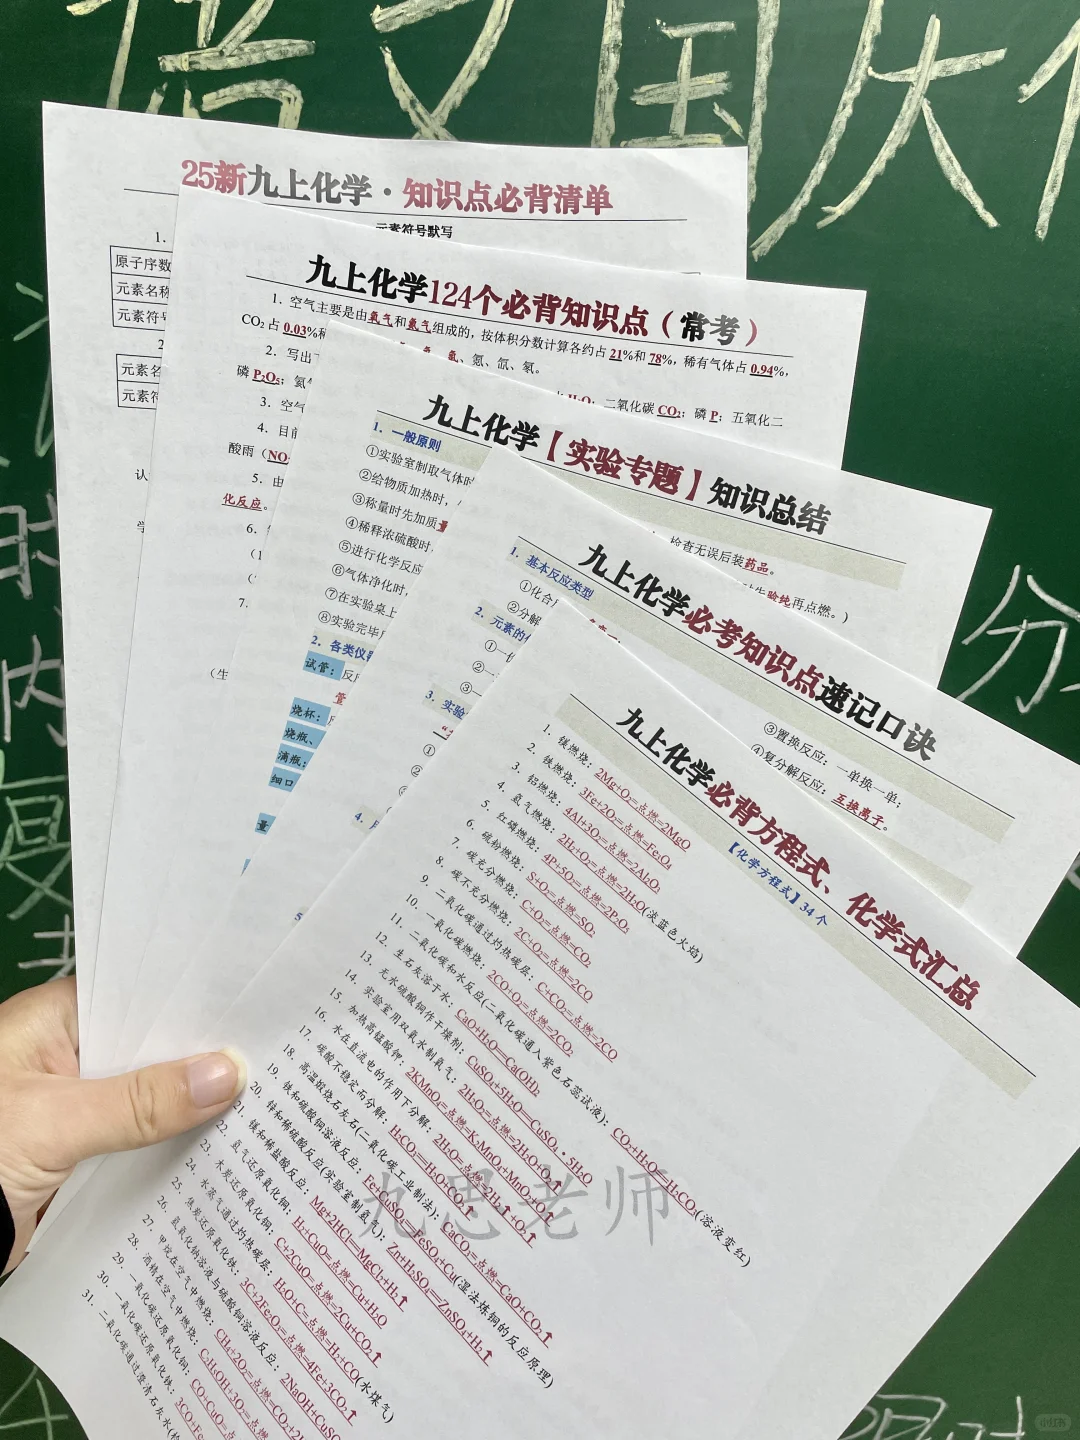 语文国庆
25新九上化学·知识点必背清单
元素符号默写
1.
原子序数
元素名称
元素符号
2
元素名
元素符
认
学
九上化学124个必背知识点（常考）
1. 空气主要是由氧气和氮气组成的，按体积分数计算各约占21%和78%，稀有气体占0.94%，
CO₂占0.03%和
2. 写出
氦、氖、氩、氪、氙、氡。
H₂O；二氧化碳CO₂；磷P；五氧化二
磷P₂O₅；氦气
3. 空气
4. 目前
酸雨（NO
5. 由
化反应。
6.
7.
（生
九上化学【实验专题】知识总结
1. 一般原则
①实验室制取气体时
检查无误后装药品。
②给物质加热时，
③称量时先加质量
验纯再点燃。）
④稀释浓硫酸时
⑤进行化学反应
⑥气体净化时，
⑦在实验桌上
⑧实验完毕
2. 各类仪器
试管：反应
管
烧杯：
烧瓶、
滴瓶：
细口
量
5
九上化学必考知识点速记口诀
1. 基本反应类型
①化合
②分解
③置换反应：一单换一单；
④复分解反应：互换离子。
2. 元素的
①一价
②二
③一
3. 实验
①
②
③
4.
九上化学必背方程式、化学式汇总
【化学方程式】34个
1. 镁燃烧：2Mg+O₂=点燃=2MgO
2. 铁燃烧：3Fe+2O₂=点燃=Fe₃O₄
3. 铝燃烧：4Al+3O₂=点燃=2Al₂O₃
4. 氢气燃烧：2H₂+O₂=点燃=2H₂O(淡蓝色火焰)
5. 红磷燃烧：4P+5O₂=点燃=2P₂O₅
6. 硫粉燃烧：S+O₂=点燃=SO₂
7. 碳充分燃烧：C+O₂=点燃=CO₂
8. 碳不充分燃烧：2C+O₂=点燃=2CO
9. 二氧化碳通过灼热碳层：C+CO₂=点燃=2CO
10. 一氧化碳燃烧：2CO+O₂=点燃=2CO₂
11. 二氧化碳和水反应(二氧化碳通入紫色石蕊试液)：CO₂+H₂O═H₂CO₃(溶液变红)
12. 生石灰溶于水：CaO+H₂O═Ca(OH)₂
13. 无水硫酸铜作干燥剂：CuSO₄+5H₂O═CuSO₄·5H₂O
14. 实验室用双氧水制氧气：2H₂O₂=点燃=2H₂O+O₂↑
15. 加热高锰酸钾：2KMnO₄=点燃=K₂MnO₄+MnO₂+O₂↑
16. 水在直流电的作用下分解：2H₂O=点燃=2H₂↑+O₂↑
17. 碳酸不稳定而分解：H₂CO₃═H₂O+CO₂↑
18. 高温煅烧石灰石(二氧化碳工业制法)：CaCO₃=点燃=CaO+CO₂↑
19. 铁和硫酸铜溶液反应：Fe+CuSO₄═FeSO₄+Cu(湿法炼铜的反应原理)
20. 锌和稀硫酸反应(实验室制氢气)：Zn+H₂SO₄═ZnSO₄+H₂↑
21. 镁和稀盐酸反应：Mg+2HCl═MgCl₂+H₂↑
22. 氢气还原氧化铜：H₂+CuO=点燃=Cu+H₂O
23. 木炭还原氧化铜：C+2CuO=点燃=2Cu+CO₂↑
24. 水蒸气通过灼热碳层：H₂O+C=点燃=H₂+CO(水煤气)
25. 焦炭还原氧化铁：3C+2Fe₂O₃=点燃=4Fe+3CO₂↑
26. 氢氧化钠溶液与硫酸铜溶液反应：2NaOH+CuSO
27. 甲烷在空气中燃烧：CH₄+2O₂=点燃=CO₂+2H
28. 酒精在空气中燃烧：C₂H₅OH+3O₂=点燃
29. 一氧化碳还原氧化铜：CO+CuO=点燃
30. 一氧化碳还原氧化铁：3CO+Fe
31. 二氧化碳通过澄清石灰水(
九思老师
小红书